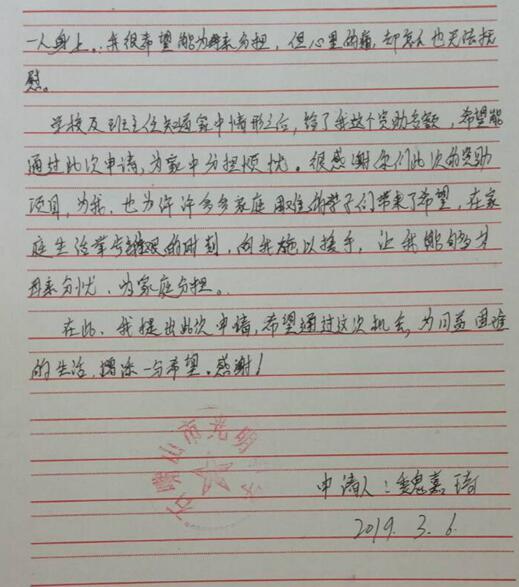 一人身上。我很希望能为母亲分担，但心里的痛，却怎么也无法抚
慰。
学校及班主任知道家中情形之后，给了我这个资助名额，希望能
通过此次申请，为家中分担烦忧。很感谢你们此次的资助
项目，为我，也为许许多多家庭困难的学子们带来了希望，在家
庭生活掌艰难的时刻，向我施以援手，让我能够为
母亲分忧、为家庭分担。
在此，我提出此次申请，希望通过这次机会，为日益困难
的生活，增添一与希望。感谢！
石市光明
申请人：魏嘉琦
2019.3.6